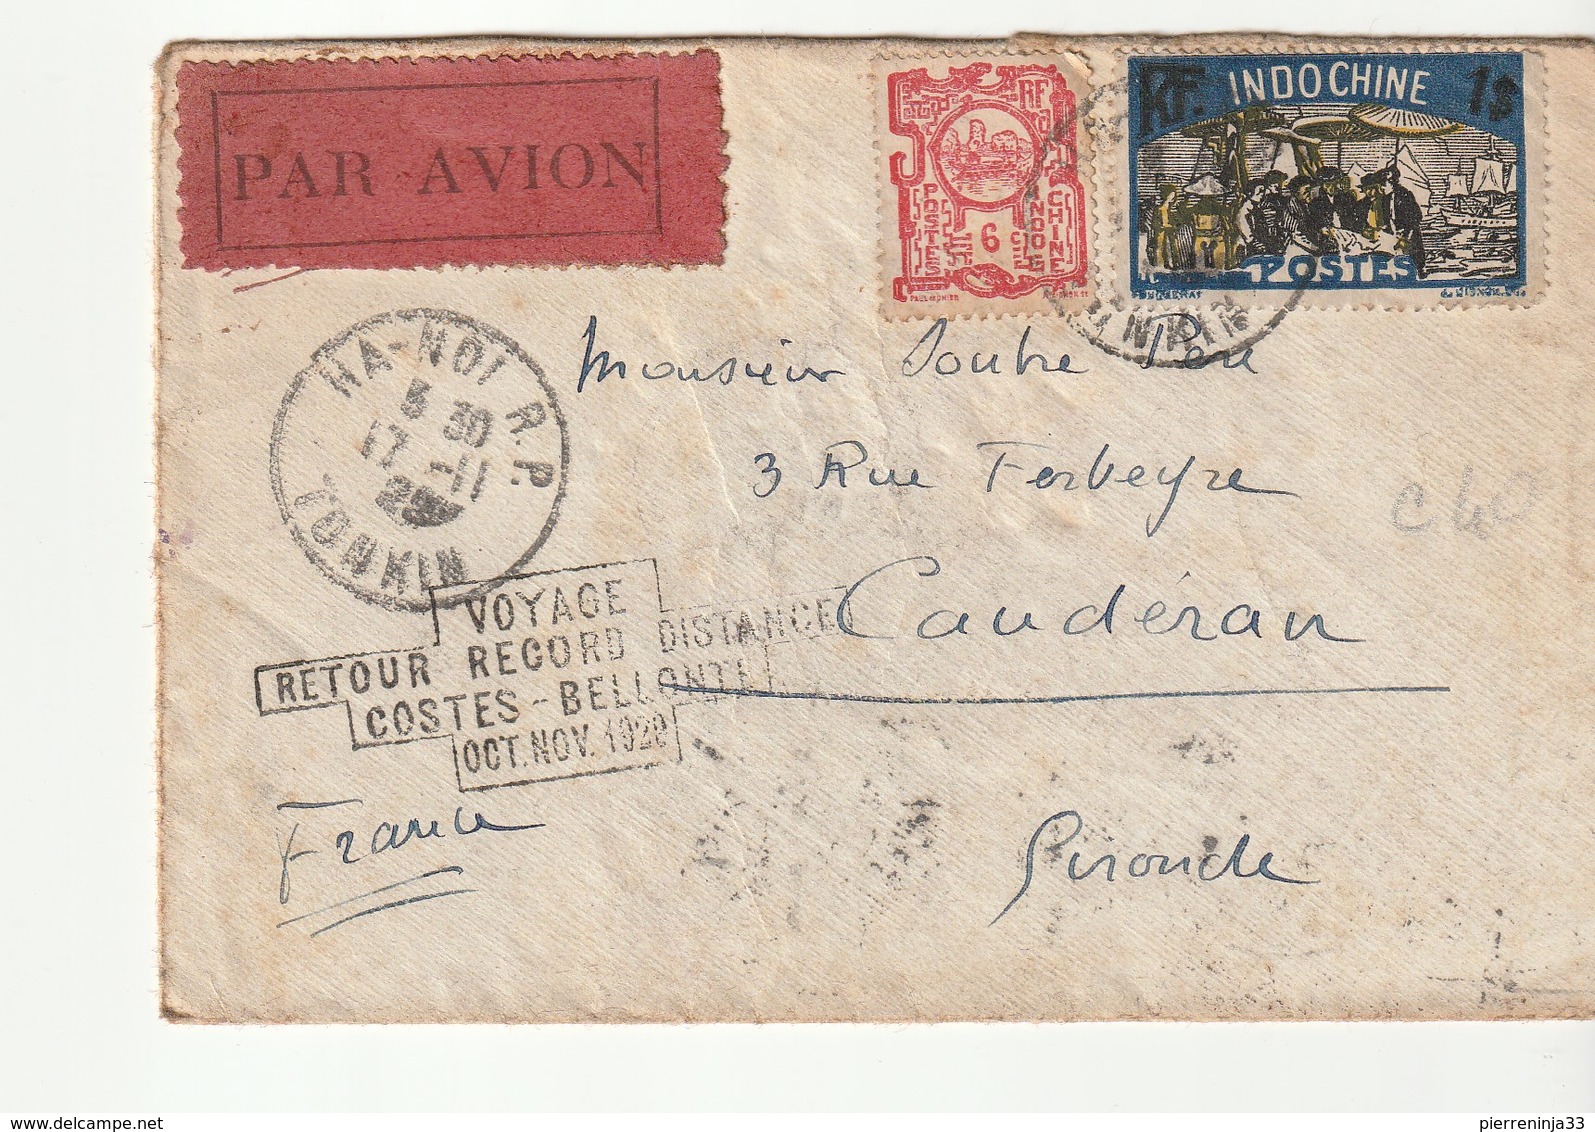 PAR AVION
RF
POSTES
INDO
CHINE
6
PAUL MONIER
RF INDOCHINE 1$
POSTES
HA-NOI R.P.
5 30
17 -11
29
TONKIN
Monsieur Soutre Pere
3 Rue Ferbeyre
Caudéran
Gironde
France
VOYAGE
RETOUR RECORD DISTANCE
COSTES-BELLONTE
OCT. NOV. 1929
delcampe.net
pierreninja33